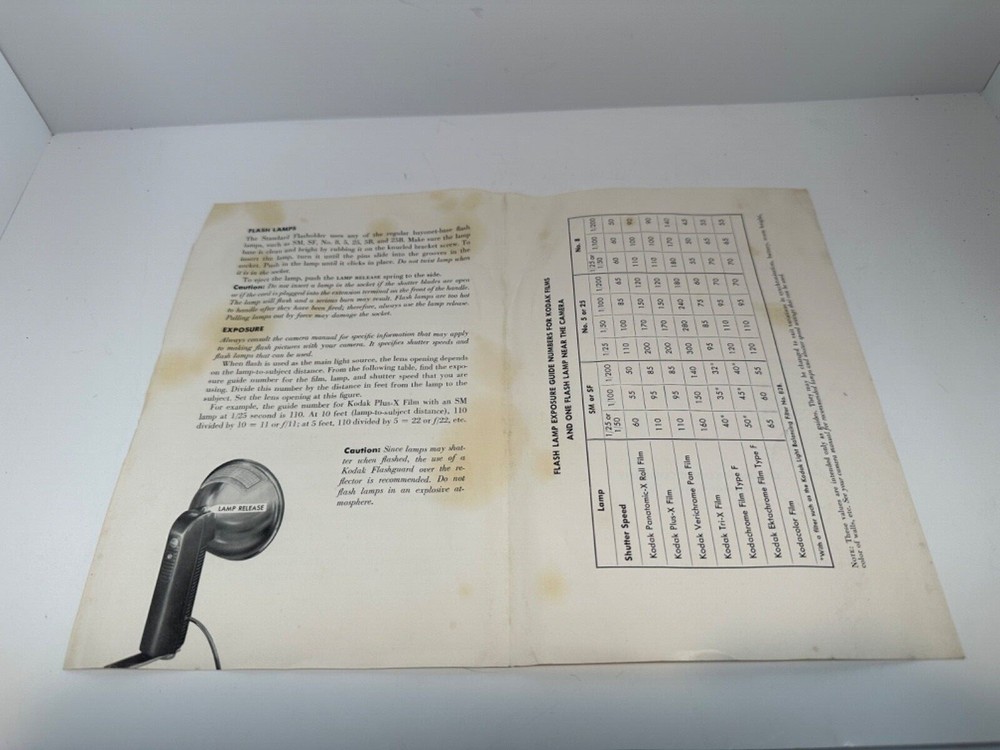 FLASH LAMPS
The Standard Flasholder uses any of the regular bayonet-base flash
lamps, such as SM, SF, No. 8, 5, 25, 5B, and 25B. Make sure the lamp
base is clean and bright by rubbing it on the knurled bracket screw. To
insert the lamp, turn it until the pins slide into the grooves in the
socket. Push in the lamp until it clicks in place. Do not twist lamp when
it is in the socket.
To eject the lamp, push the LAMP RELEASE spring to the side.
Caution: Do not insert a lamp in the socket if the shutter blades are open
or if the cord is plugged into the extension terminal on the front of the handle.
The lamp will flash and a serious burn may result. Flash lamps are too hot
to handle after they have been fired; therefore, always use the lamp release.
Pulling lamps out by force may damage the socket.
EXPOSURE
Always consult the camera manual for specific information that may apply
to making flash pictures with your camera. It specifies shutter speeds and
flash lamps that can be used.
When flash is used as the main light source, the lens opening depends
on the lamp-to-subject distance. From the following table, find the expo-
sure guide number for the film, lamp, and shutter speed that you are
using. Divide this number by the distance in feet from the lamp to the
subject. Set the lens opening at this figure.
For example, the guide number for Kodak Plus-X Film with an SM
lamp at 1/25 second is 110. At 10 feet (lamp-to-subject distance), 110
divided by 10 = 11 or f/11; at 5 feet, 110 divided by 5 = 22 or f/22, etc.
Caution: Since lamps may shat-
ter when flashed, the use of a
Kodak Flashguard over the re-
flector is recommended. Do not
flash lamps in an explosive at-
mosphere.
LAMP RELEASE
FLASH LAMP EXPOSURE GUIDE NUMBERS FOR KODAK FILMS
AND ONE FLASH LAMP NEAR THE CAMERA
Lamp SM or SF No. 5 or 25 No. 8
Shutter Speed 1/25 or 1/50 1/100 1/200 1/25 1/50 1/100 1/200 1/25 or 1/50 1/100 1/200
Kodak Panatomic-X Roll Film 60 55 50 110 100 85 65 60 60 50
Kodak Plus-X Film 110 95 85 200 170 150 120 110 100 90
Kodak Verichrome Pan Film 110 95 85 200 170 150 120 110 100 90
Kodak Tri-X Film 160 150 140 300 280 240 180 180 170 140
Kodachrome Film Type F 40* 35* 32* 95 85 75 60 55 50 45
Kodak Ektachrome Film Type F 50* 45* 40* 120 110 95 70 70 65 55
Kodacolor Film 65 60 55 120 110 95 70 70 65 55
*With a filter such as the Kodak Light Balancing Filter No. 82A.
NOTE: These values are intended only as guides. They may be changed to suit variations in
color of walls, etc. See your camera manual for recommended lamps and shutter speed settings